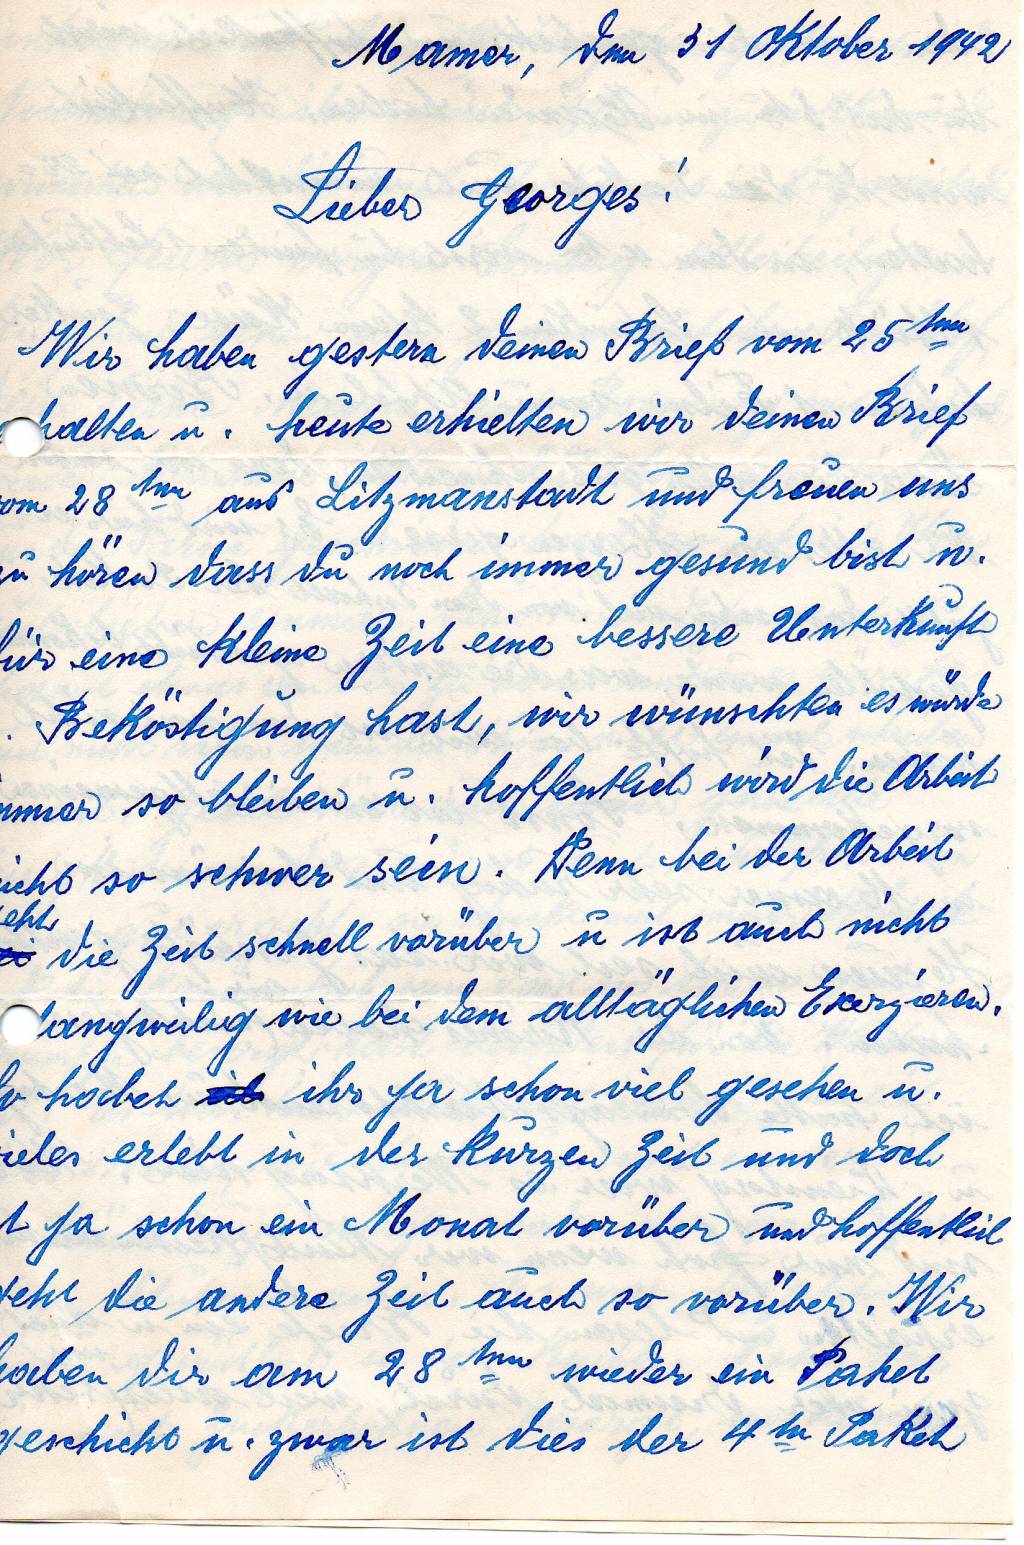 Mamer, den 31 Oktober 1942
Lieber Georges!
Wir haben gestern deinen Brief vom 25ten
halten u. heute erhielten wir deinen Brief
vom 28ten aus Litzmanstadt und freuen uns
zu hören dass du noch immer gesund bist u.
für eine kleine Zeit eine bessere Unterkunft
. Beköstigung hast, wir wünschten es würde
immer so bleiben u. hoffentlich wird die Arbeit
nicht so schwer sein. Denn bei der Arbeit
geht die Zeit schnell vorüber u ist auch nicht
langweilig wie bei dem alltäglichen Exerzieren.
So habet ihr ja schon viel gesehen u.
vieles erlebt in der kurzen Zeit und doch
t ja schon ein Monat vorüber und hoffentlich
geht die andere Zeit auch so vorüber. Wir
haben dir am 28ten wieder ein Paket
geschickt u. zwar ist dies der 4te Paket